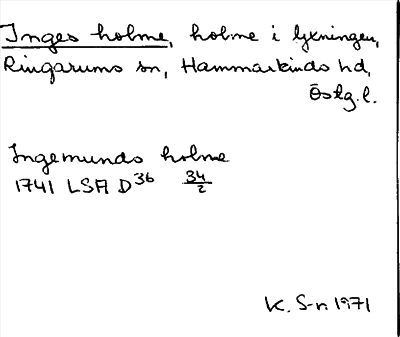 Inges holme, holme i Yxningen,
Ringarums sn, Hammarkinds hd,
Östg. l.
Ingemunds holme
1741 LSA D36 34/2
K. S-n 1971